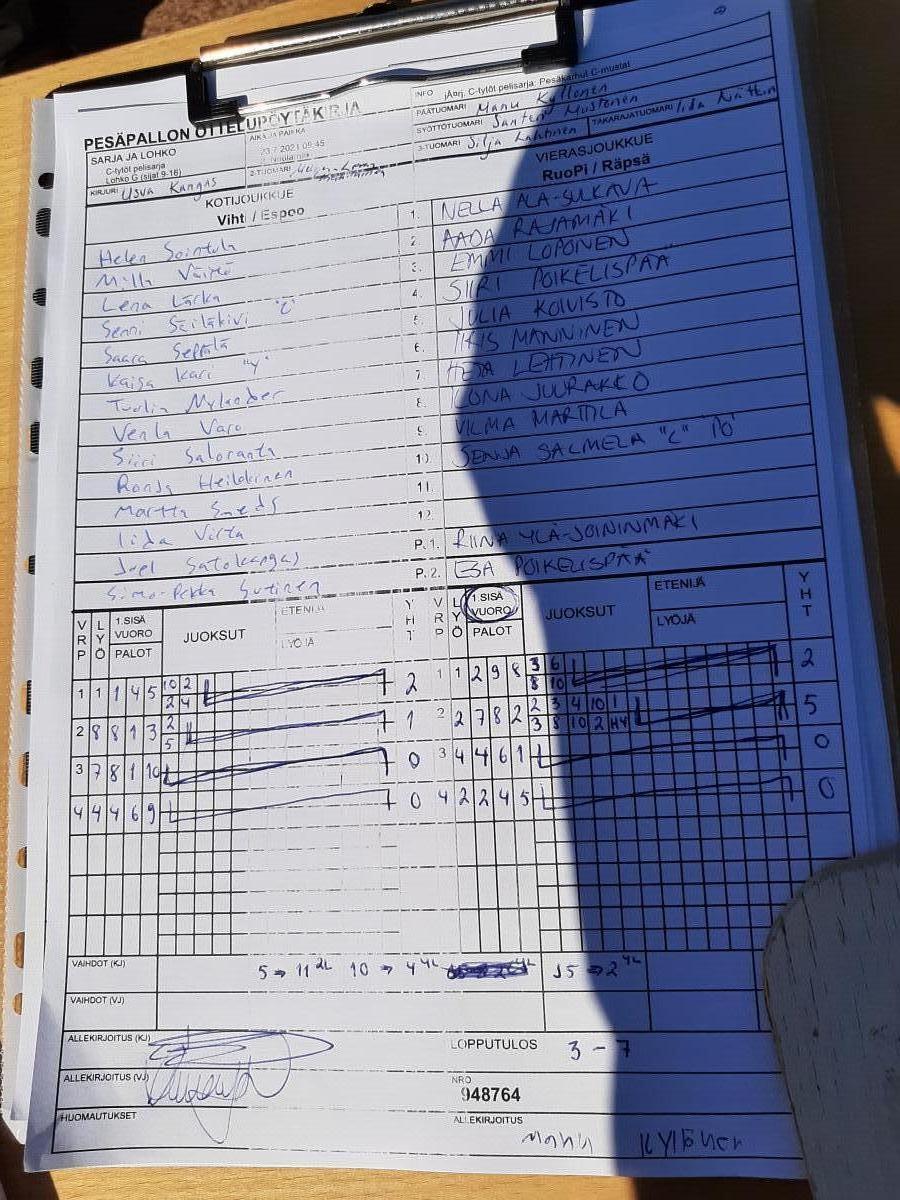 PESÄPALLON OTTELUPÖYTÄKIRJA
INFO jAnj. C-tytöt pelisarja: Pesäkarhut C-mustat
SARJA JA LOHKO
C-tytöt pelisarja
Lohko G (sijat 9-16)
AIKA JA PAIKKA
23.7.2021 09:45
PÄÄTUOMARI Manu Kyllönen
SYÖTTÖTUOMARI Santeri Mustonen
KIRJURI Usva Kangas
2-TUOMARI
3-TUOMARI Silja Lahtinen
TAKARAJATUOMARI Iida Nättin
KOTIJOUKKUE
Vihti / Espoo
VIERASJOUKKUE
RuoPi / Räpsä
Helen Sointula 1. NELLA ALA-SULKAVA
Milla Väistö 2. AADA RAJAMÄKI
Lena Lärka 3. EMMI LOPONEN
Senni Säiläkivi "C" 4. SIIRI POIKELISPÄÄ
Saara Seppälä 5. JULIA KOIVISTO
Kaisa Kari "4" 6. IIRIS MANNINEN
Tuulia Mylander 7. HETA LEHTINEN
Venla Varo 8. ILONA JUURAKKO
Siiri Saloranta 9. VILMA MARTTILA
Ronja Heikkinen 10. SENJA SALMELA "C"
Martta Smeds 11.
Iida Virta 12.
Joel Satokangas P.1. RIINA YLÄ-JOININMÄKI
Simo-Pekka Sutinen P.2. ESA POIKELISPÄÄ
VRP LYÖ 1.SISÄ VUORO PALOT JUOKSUT ETENIJÄ LYÖJÄ YHT VRP LYÖ 1.SISÄ VUORO PALOT JUOKSUT ETENIJÄ LYÖJÄ YHT
1 1 1 4 5 10 2 2 1 1 2 9 8 3 6 2
2 4 8 10
2 8 8 1 3 2 1 2 2 7 8 2 2 3 4 10 1 5
5 3 8 10 2 H4
3 7 8 1 10 0 3 4 4 6 1 0
4 4 4 6 9 0 4 2 2 4 5 0
VAIHDOT (KJ) 5 → 11 2L 10 → 4 4L 15 → 2 4L
VAIHDOT (VJ)
ALLEKIRJOITUS (KJ)
LOPPUTULOS 3 - 7
ALLEKIRJOITUS (VJ)
NRO
948764
HUOMAUTUKSET
ALLEKIRJOITUS
Manu Kyllönen